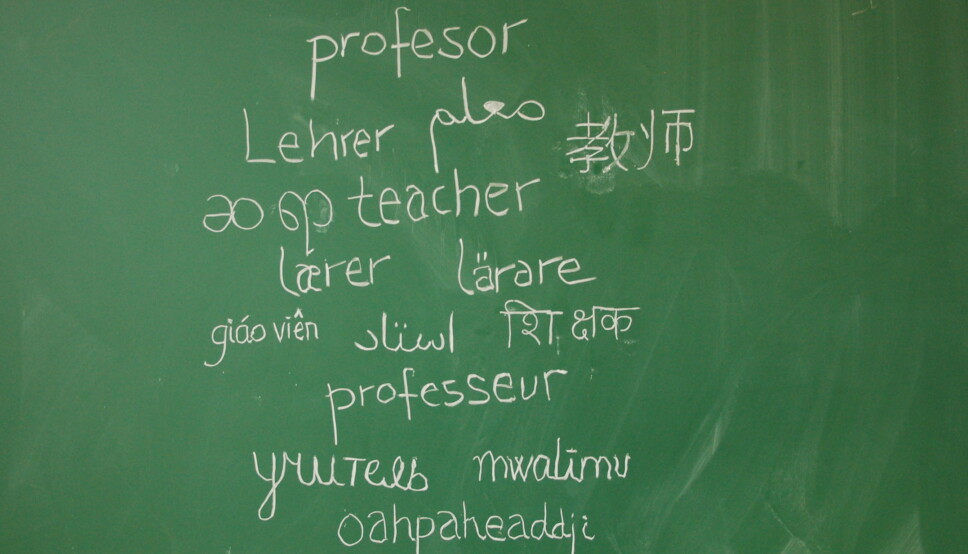 profesor
Lehrer معلم 教师
teacher
lærer lärare
giáo viên استاد शिक्षक
professeur
учитель mwalimu
oahpaheaddji